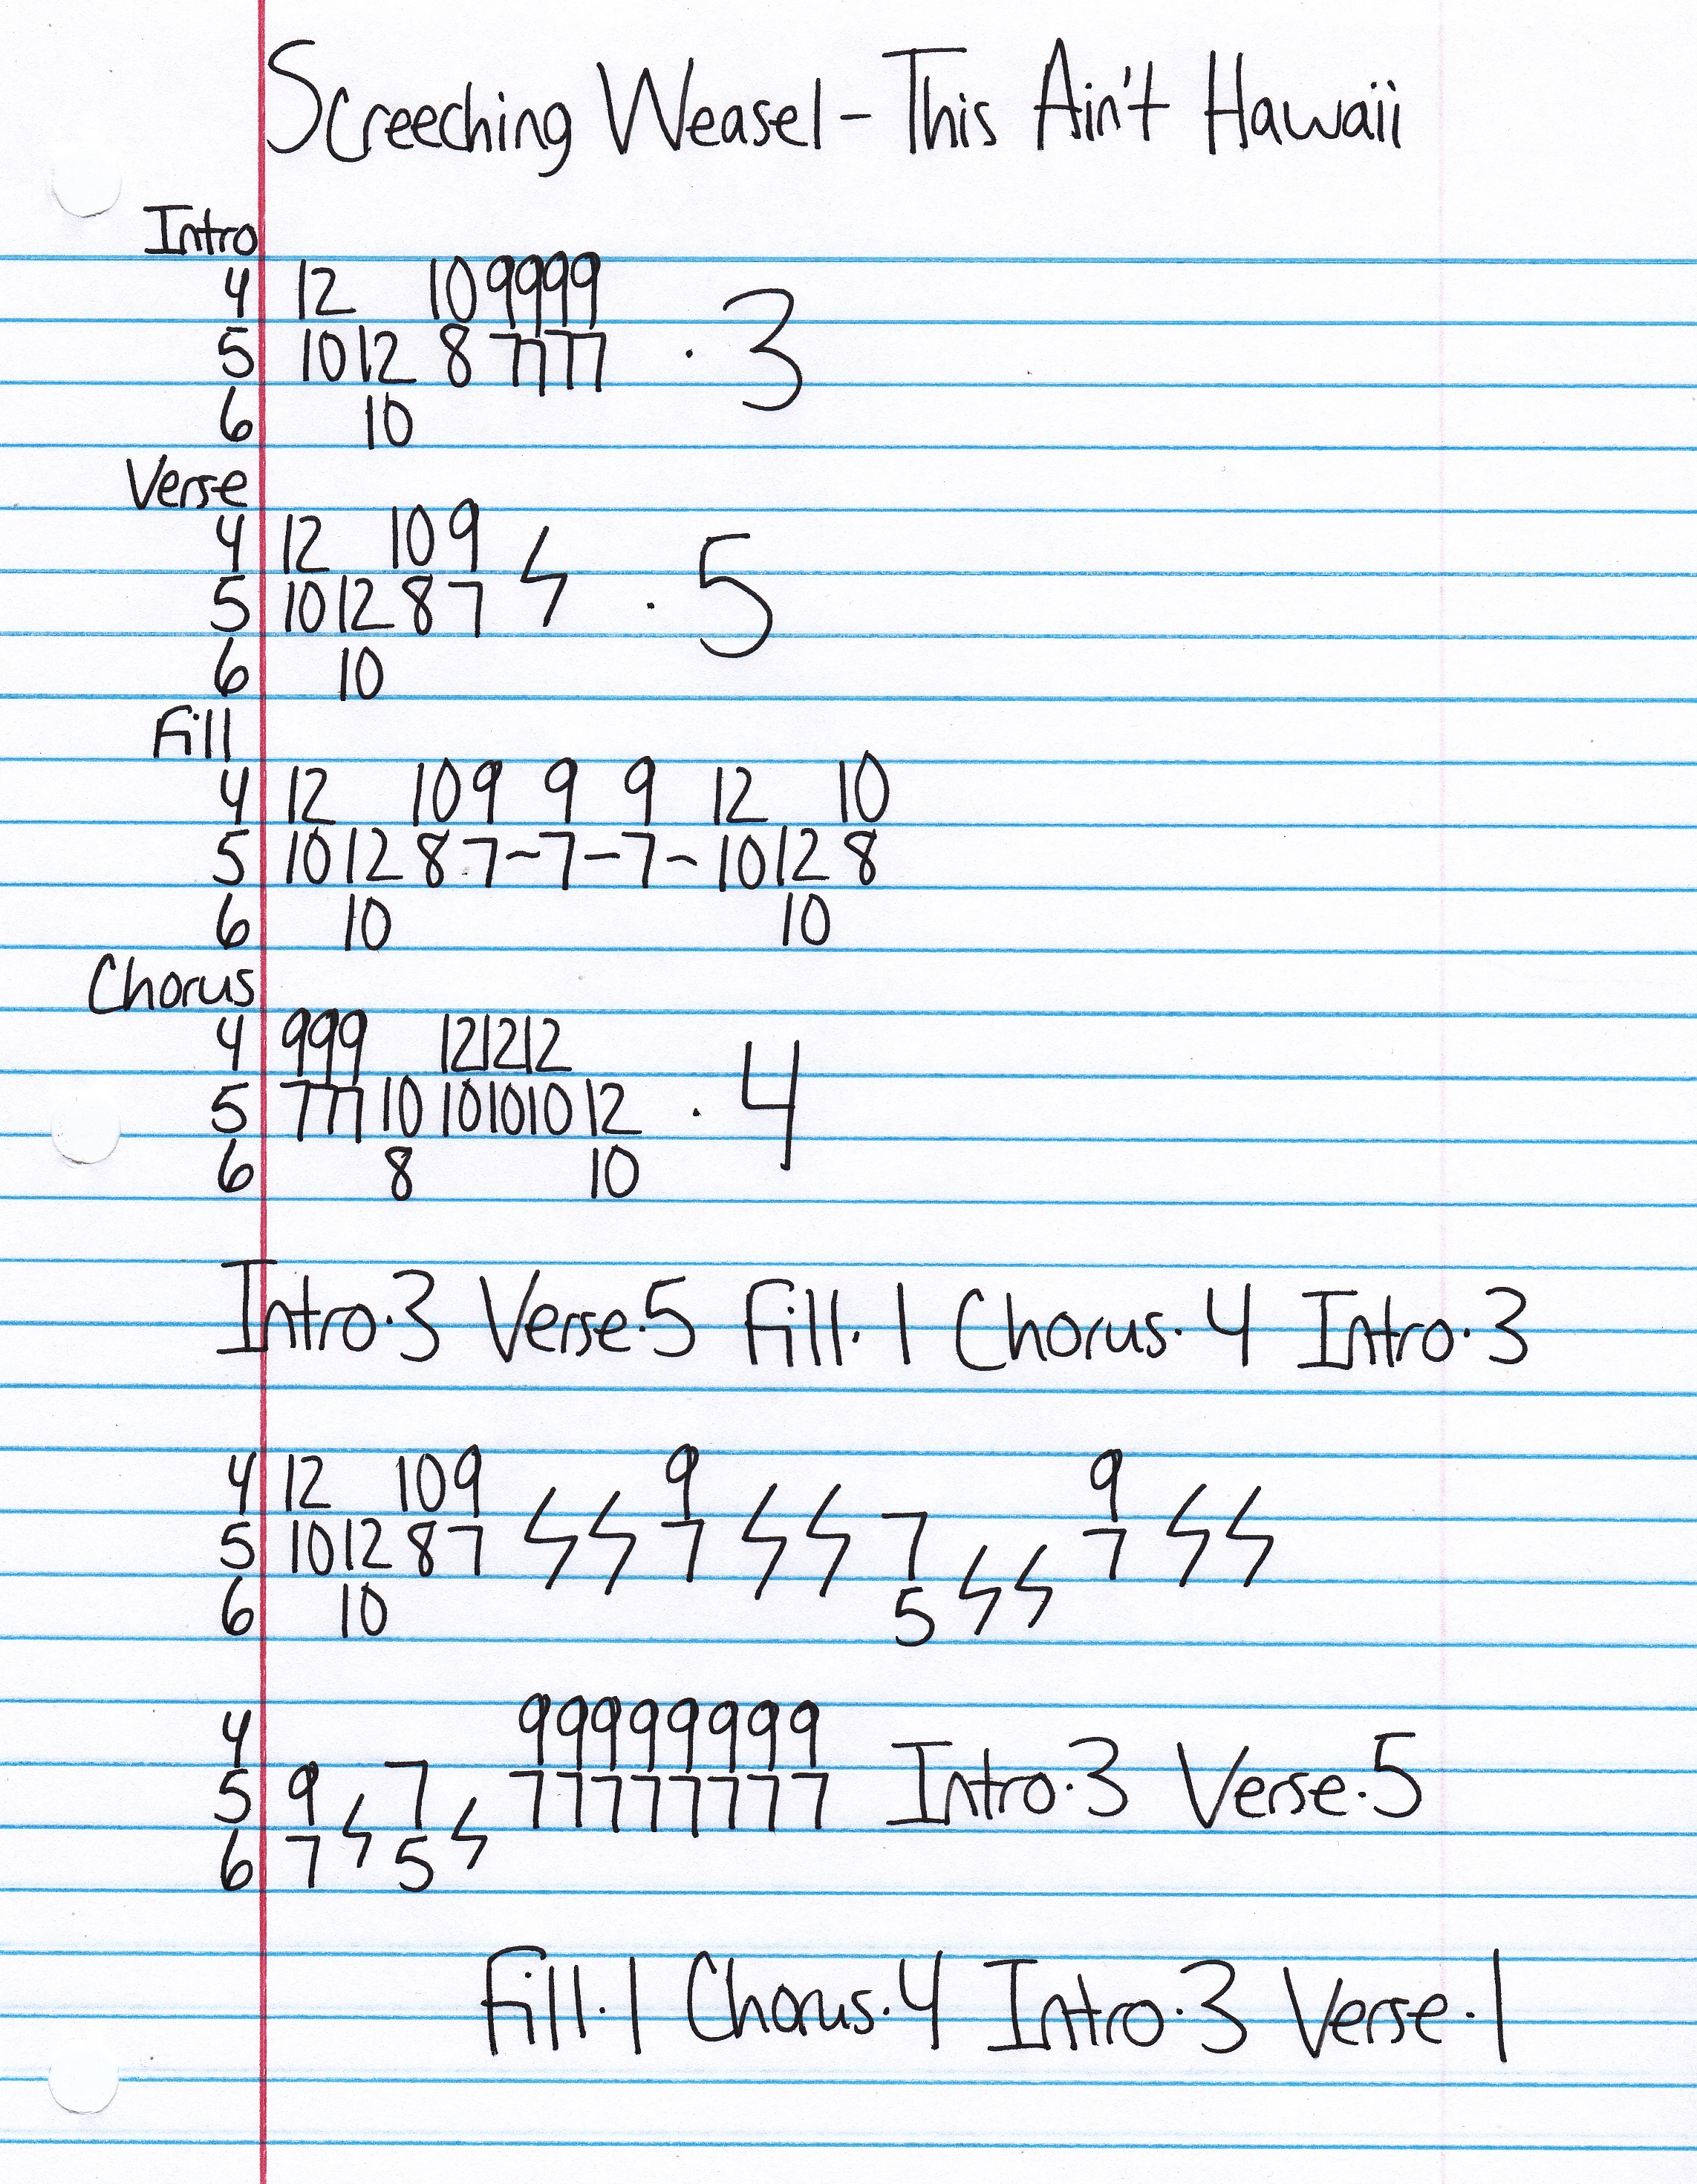 Screeching Weasel - This Ain't Hawaii
Intro
4 12 10 9 9 9 9
5 10 12 8 7 7 7 7 · 3
6 10
Verse
4 12 10 9
5 10 12 8 7 ϟ · 5
6 10
Fill
4 12 10 9 9 9 12 10
5 10 12 8 7 ~ 7 ~ 7 ~ 10 12 8
6 10 10
Chorus
4 9 9 9 12 12 12
5 7 7 7 10 10 10 10 12 · 4
6 8 10
Intro·3 Verse·5 Fill·1 Chorus·4 Intro·3
4 12 10 9 9 9
5 10 12 8 7 ϟ ϟ 7 ϟ ϟ 7 ϟ ϟ 7 ϟ ϟ
6 10 5
4 9 9 9 9 9 9 9 9
5 9 ϟ 7 ϟ 7 7 7 7 7 7 7 7 Intro·3 Verse·5
6 7 5
Fill·1 Chorus·4 Intro·3 Verse·1